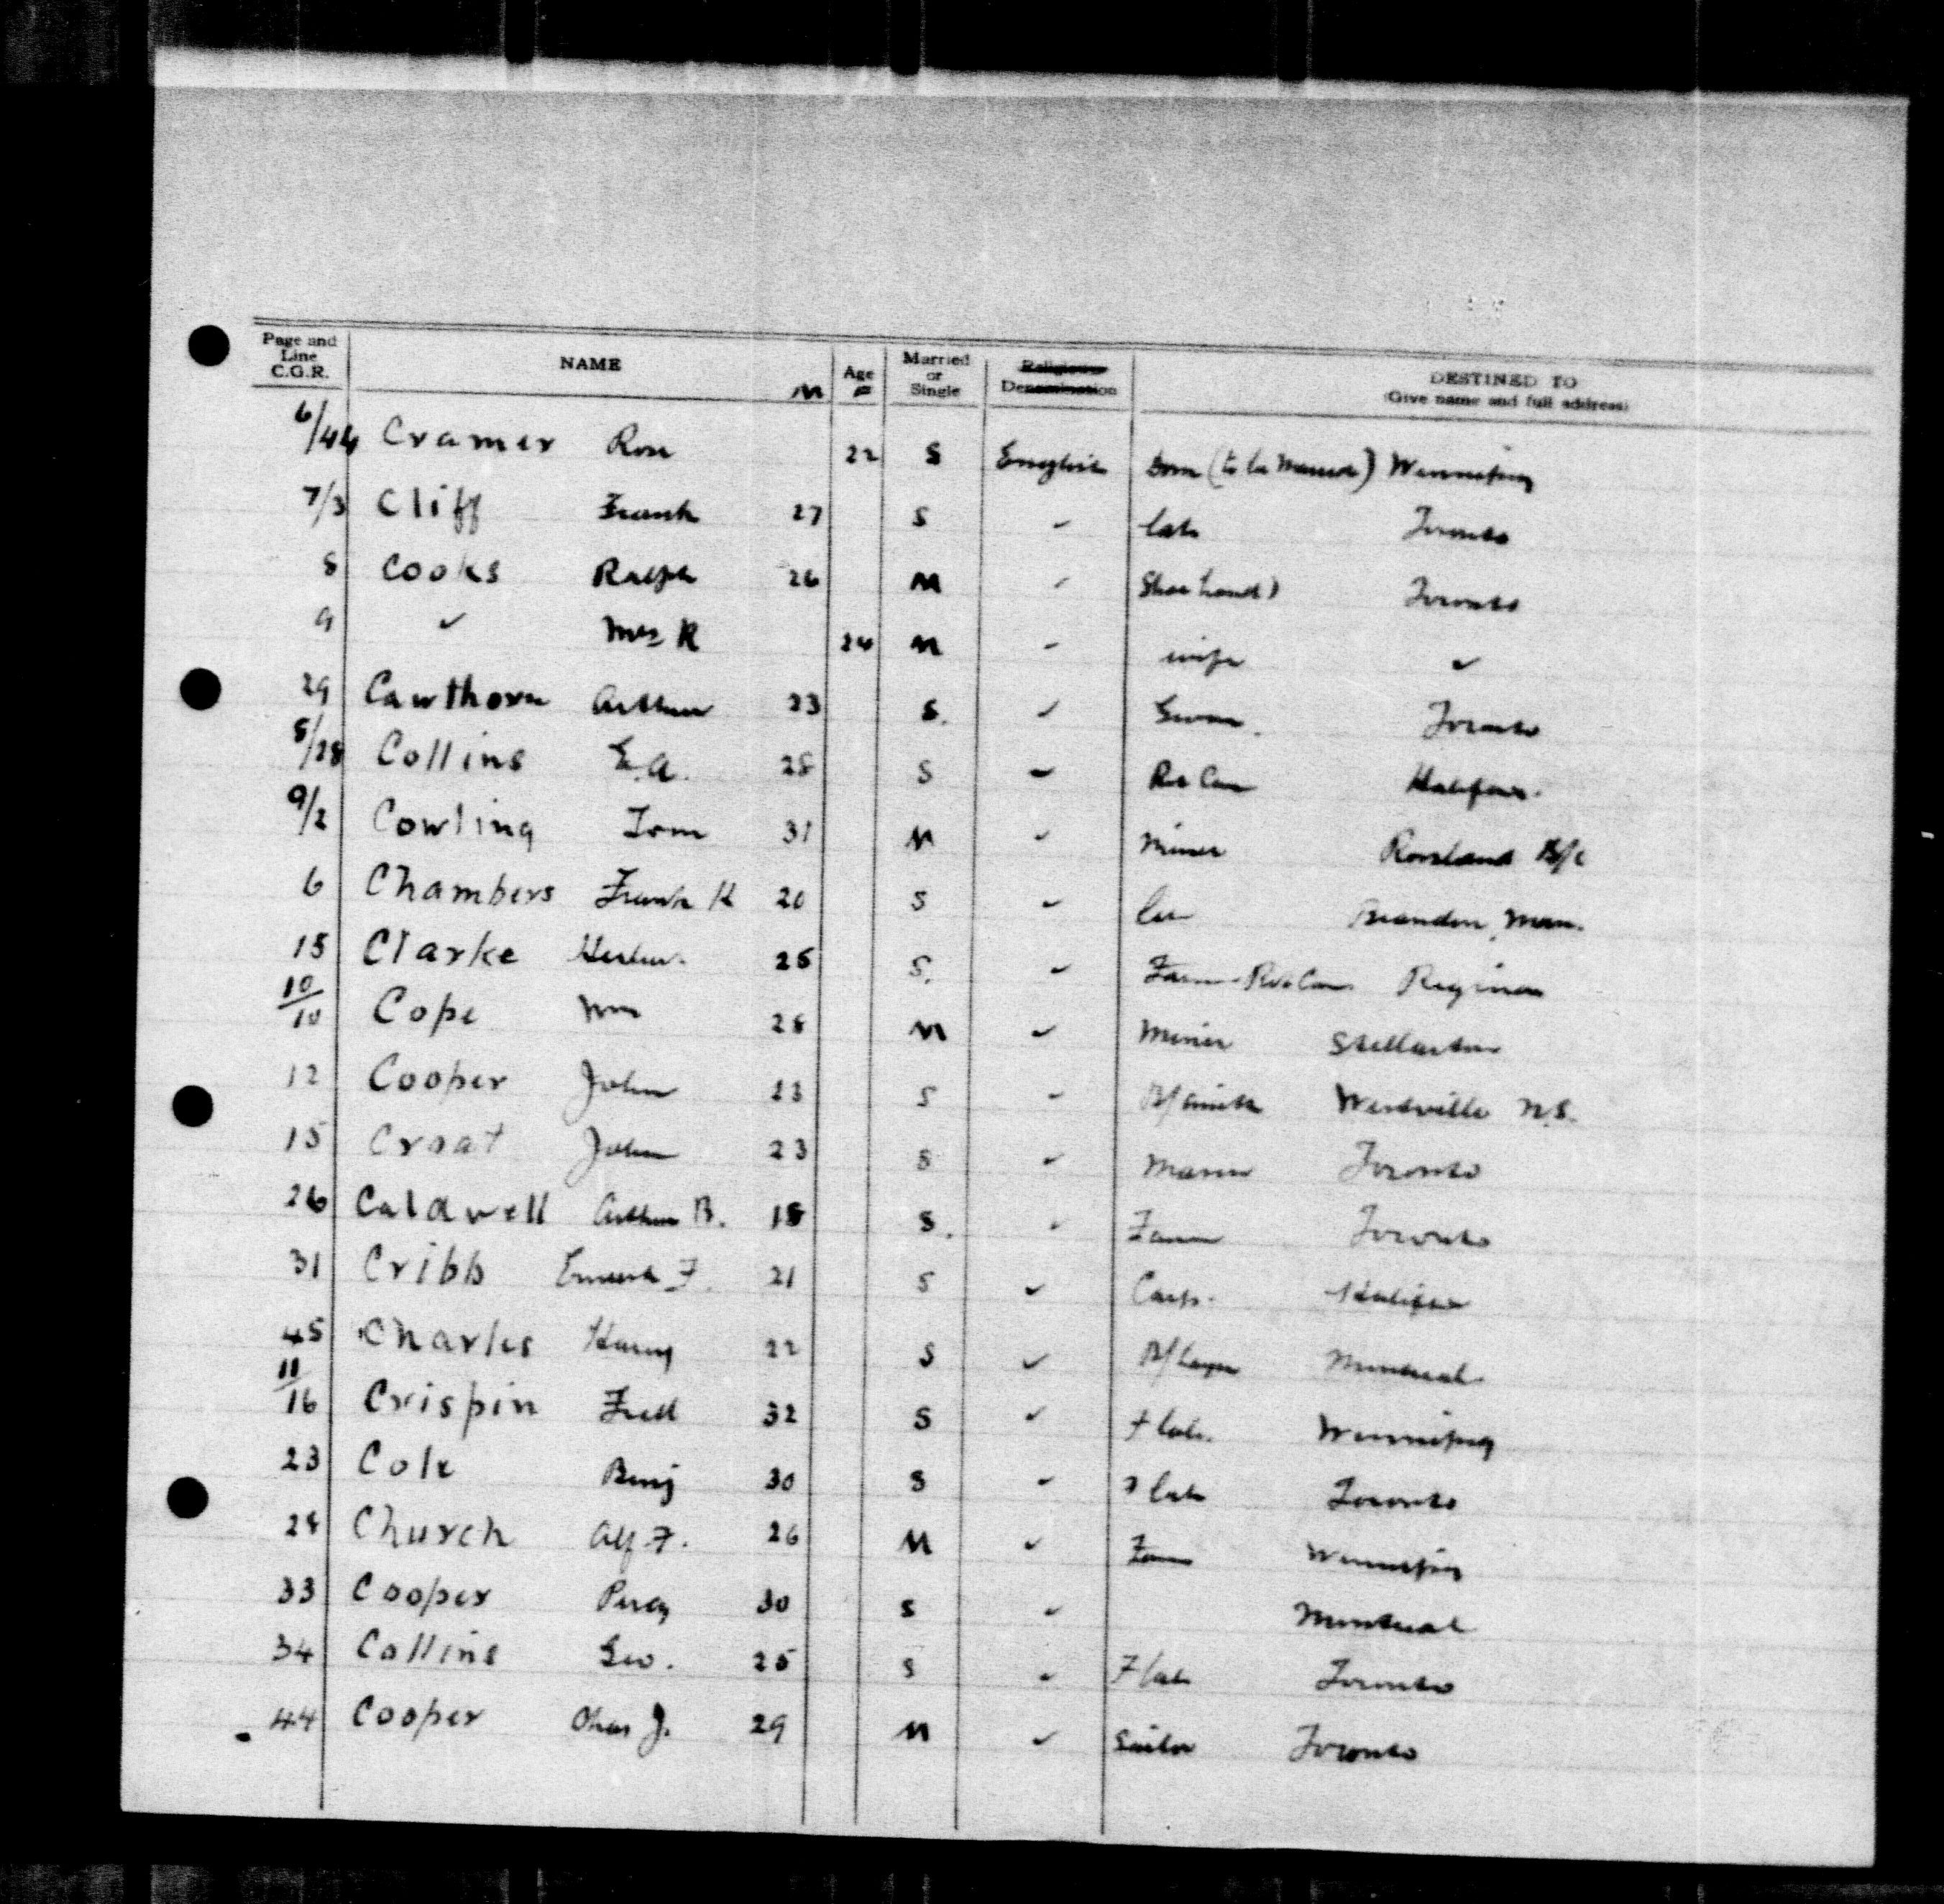 Page and Line C.G.R. NAME M Age F Married or Single Religious Denomination DESTINED TO (Give name and full address)
6/44 Cramer Rose 22 S English Dom (to be married) Winnipeg
7/3 Cliff Frank 27 S ✓ lab Toronto
8 Cooks Ralph 26 M ✓ Shoe hand) Toronto
9 ✓ Mrs R 24 M ✓ wife ✓
29 Cawthorn Arthur 23 S. ✓ Toronto
8/28 Collins E.A. 28 S ✓ Ret Can Halifax.
9/2 Cowling Tom 31 M ✓ Miner Rossland B/C
6 Chambers Frank H 20 S ✓ Brandon, Man.
15 Clarke 25 S. ✓ Farm - Ret Can Regina
10/10 Cope Wm 28 M ✓ Miner Stellarton
12 Cooper John 23 S ✓ B/smith Westville N.S.
15 Croat John 23 S ✓ Mason Toronto
26 Caldwell Arthur B. 18 S. ✓ Farm Toronto
31 Cribb Ernest F. 21 S ✓ Carp. Halifax
45 Charles Harry 22 S ✓ B/layer Montreal
11/16 Crispin Fred 32 S ✓ F lab. Winnipeg
23 Cole Benj 30 S ✓ F lab Toronto
28 Church Alf F. 26 M ✓ Farm Winnipeg
33 Cooper Percy 30 S ✓ Montreal
34 Collins Geo. 25 S ✓ F lab Toronto
44 Cooper Chas J. 29 M ✓ Sailor Toronto